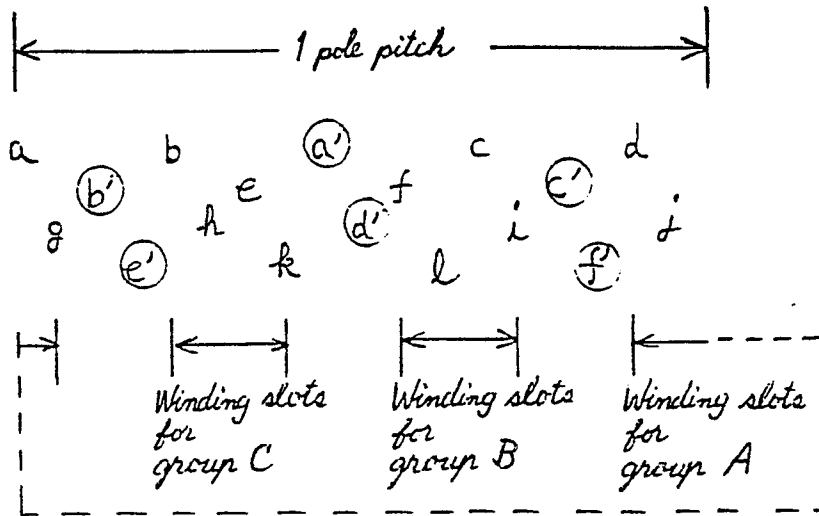 1 pole pitch
a b a' c d
b' e f c'
g h d' i j
e' k l f'
Winding slots for group C
Winding slots for group B
Winding slots for group A